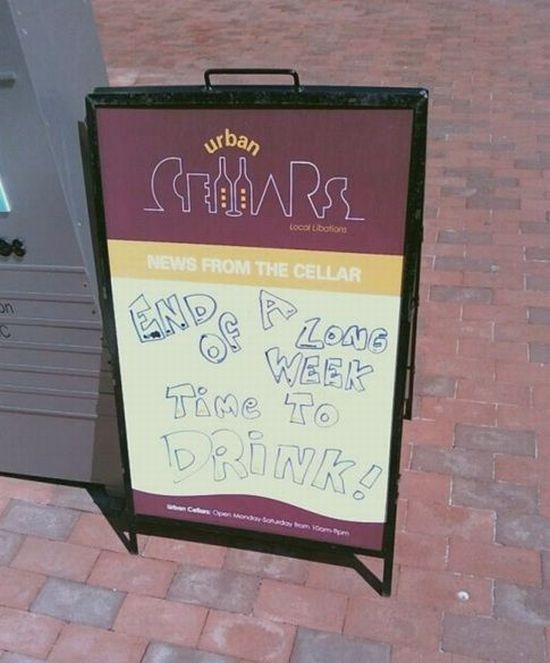 urban
CELLARS
Local Libations
NEWS FROM THE CELLAR
END OF A LONG
WEEK
TiME TO
DRiNK!
Urban Cellars: Open Monday-Saturday from 10am-9pm
on
C